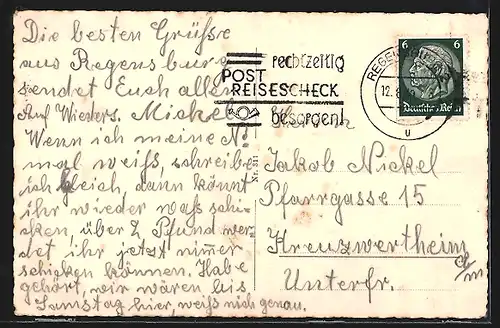 Die besten Grüsse
aus Regensburg
sendet Euch allen
Auf Wieders. Mickel
Wenn ich meine N
mal weiß, schreibe
ich gleich, dann könnt
ihr wieder waß schi-
cken, über 2 Pfund wer
det ihr jetzt nimmer
schicken können. Habe
gehört, wir wären bis
Samstag hier, weiß nich genau.
rechtzeitig
POST
REISESCHECK
besorgen!
REGENSBURG
12.
u
6 6
Deutsches Reich
Nr. 381
Jakob Nickel
Pfarrgasse 15
Kreuzwertheim
a/m
Unterfr.